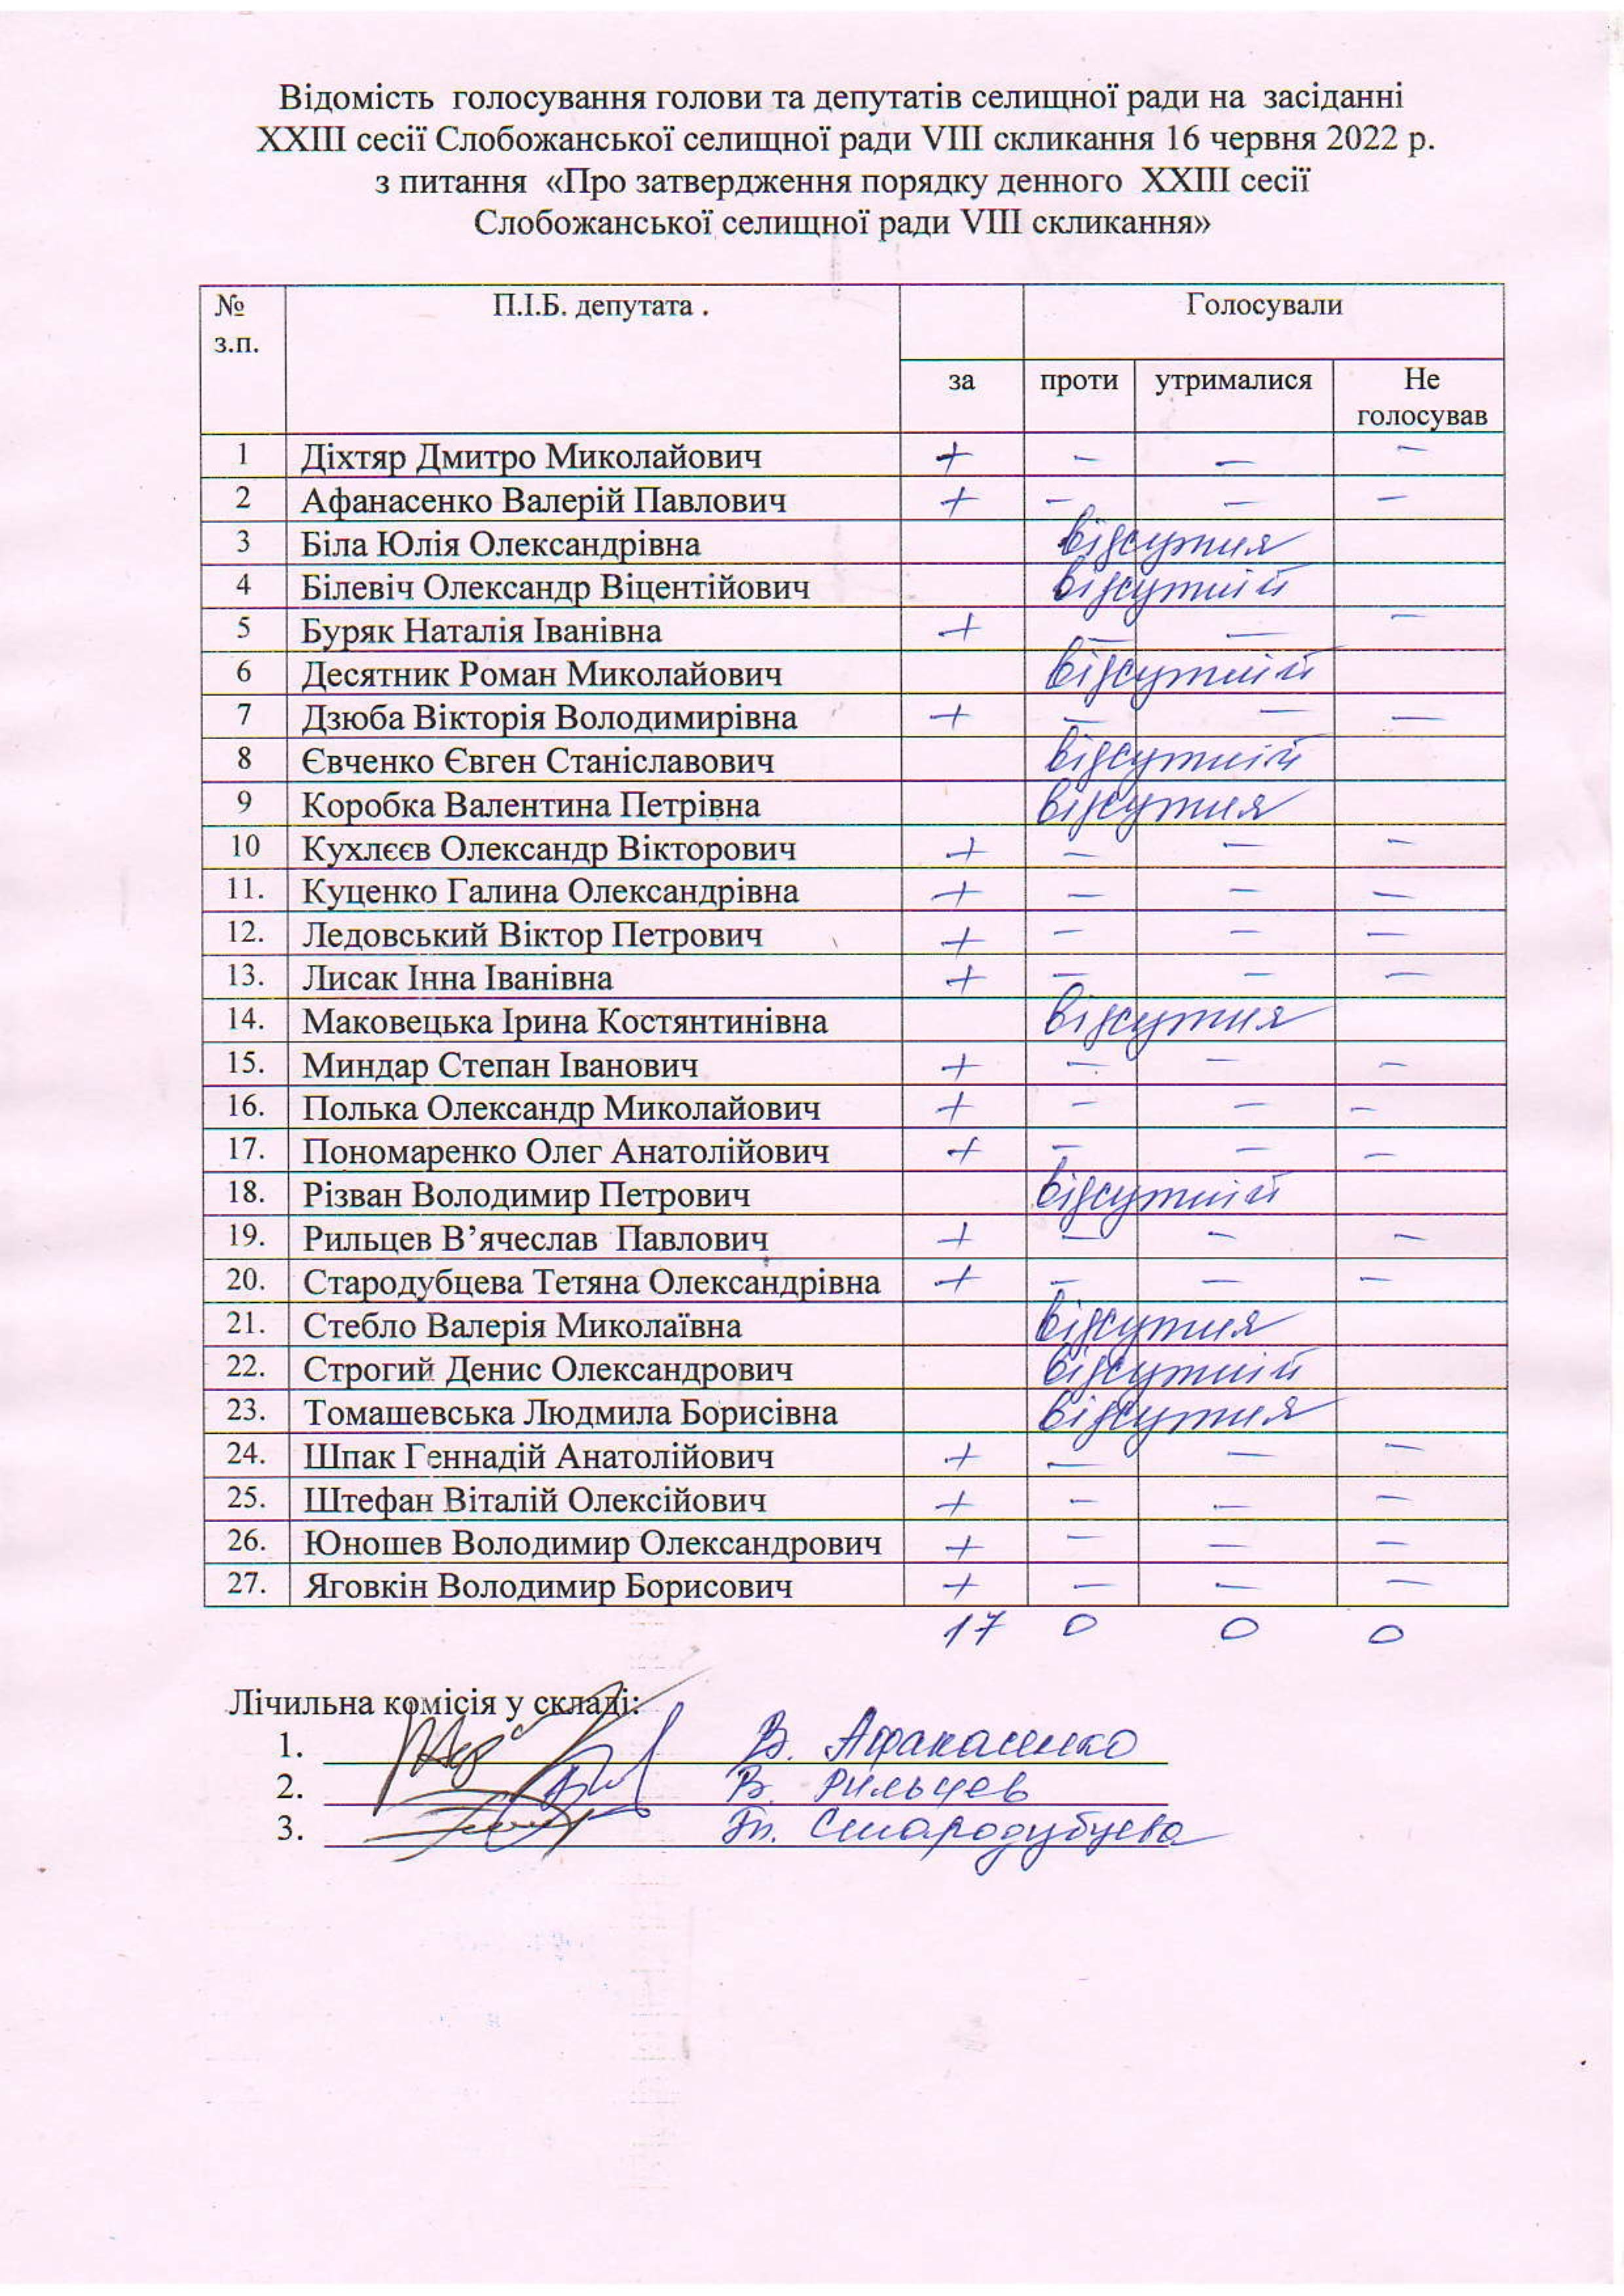 Відомість голосування голови та депутатів селищної ради на засіданні
XXIII сесії Слобожанської селищної ради VIII скликання 16 червня 2022 р.
з питання «Про затвердження порядку денного XXIII сесії
Слобожанської селищної ради VIII скликання»
№ з.п. П.І.Б. депутата . Голосували
за проти утрималися Не голосував
1 Діхтяр Дмитро Миколайович + – – –
2 Афанасенко Валерій Павлович + – – –
3 Біла Юлія Олександрівна відсутня
4 Білевіч Олександр Віцентійович відсутній
5 Буряк Наталія Іванівна + – – –
6 Десятник Роман Миколайович відсутній
7 Дзюба Вікторія Володимирівна + – – –
8 Євченко Євген Станіславович відсутній
9 Коробка Валентина Петрівна відсутня
10 Кухлєєв Олександр Вікторович + – – –
11. Куценко Галина Олександрівна + – – –
12. Ледовський Віктор Петрович + – – –
13. Лисак Інна Іванівна + – – –
14. Маковецька Ірина Костянтинівна відсутня
15. Миндар Степан Іванович + – – –
16. Полька Олександр Миколайович + – – –
17. Пономаренко Олег Анатолійович + – – –
18. Різван Володимир Петрович відсутній
19. Рильцев В’ячеслав Павлович + – – –
20. Стародубцева Тетяна Олександрівна + – – –
21. Стебло Валерія Миколаївна відсутня
22. Строгий Денис Олександрович відсутній
23. Томашевська Людмила Борисівна відсутня
24. Шпак Геннадій Анатолійович + – – –
25. Штефан Віталій Олексійович + – – –
26. Юношев Володимир Олександрович + – – –
27. Яговкін Володимир Борисович + – – –
17 0 0 0
Лічильна комісія у складі:
1. В. Афанасенко
2. В. Рильцев
3. Т. Стародубцева